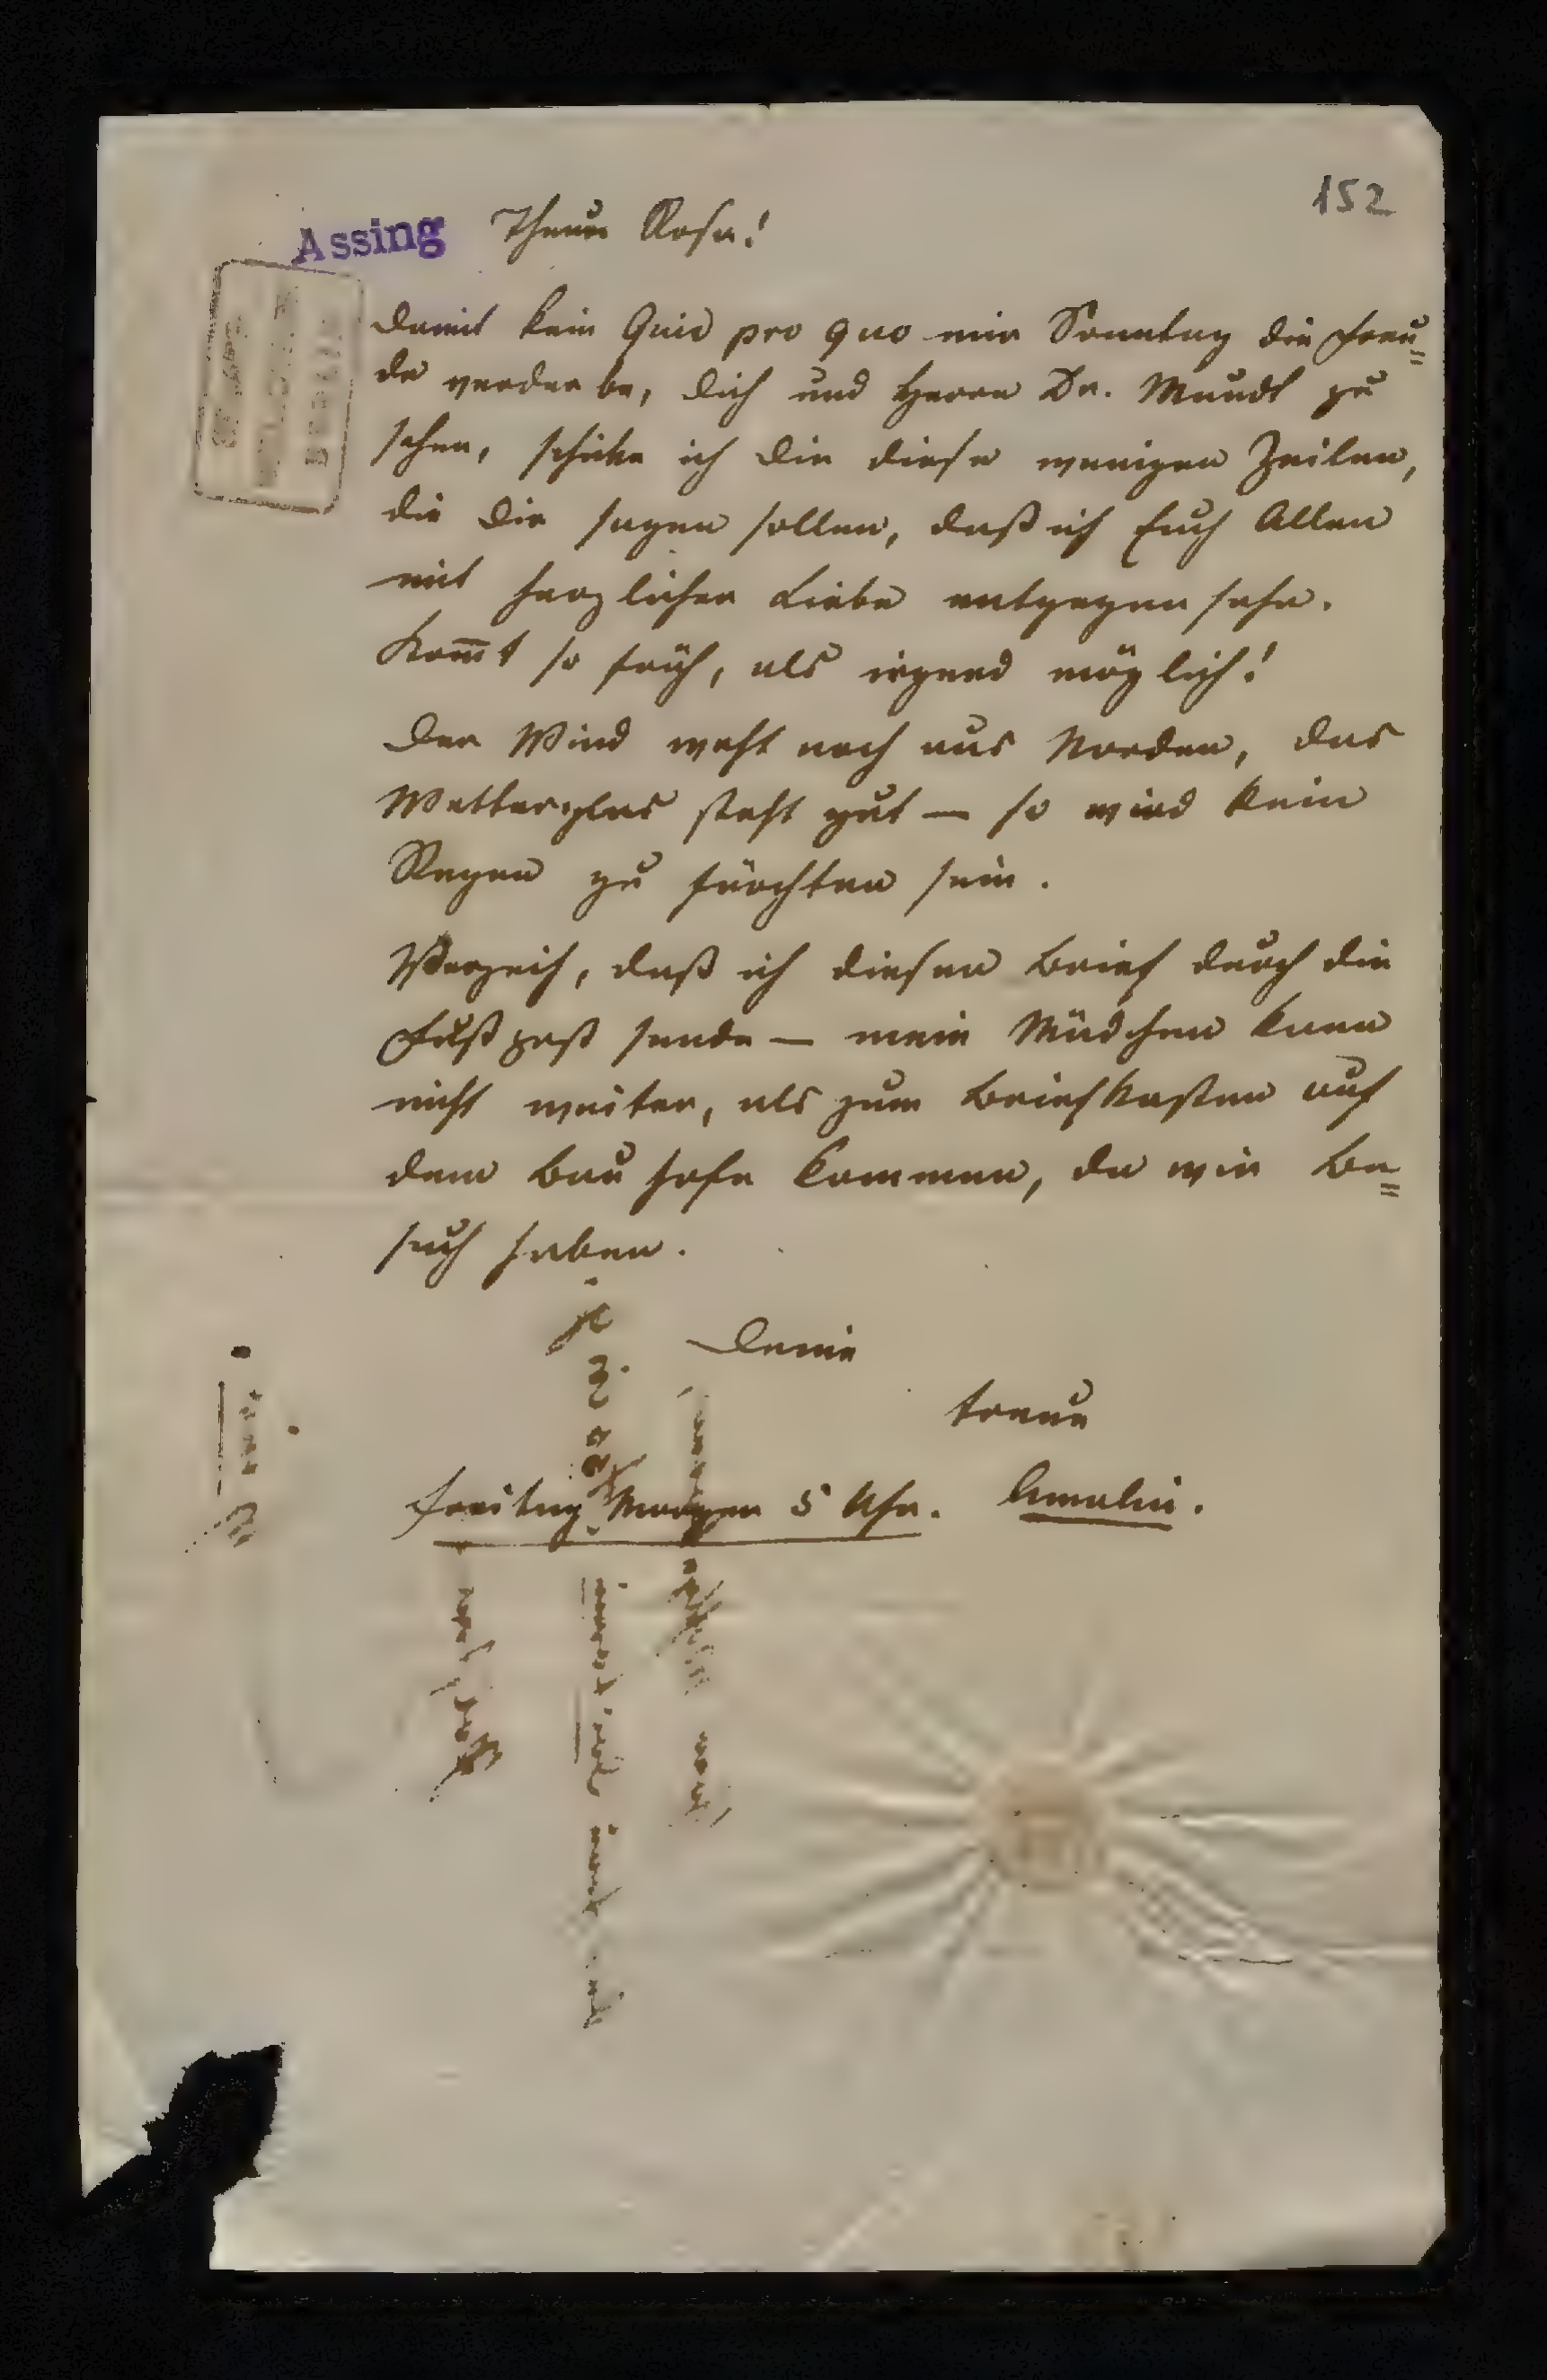 152
Assing Theure Rosa!
Damit kein Quid pro quo mir Sonntag die Freu=
de verderbe, Dich und Herrn Dr. Mundt zu
sehen, schicke ich Dir diese wenigen Zeilen,
die Dir sagen sollen, daß ich Euch Allen
mit herzlicher Liebe entgegen sehe.
Kom̄t so früh, als irgend möglich!
Der Wind weht noch aus Norden, das
Wetterglas steht gut — so wird kein
Regen zu fürchten sein.
Verzeih, daß ich diesen Brief durch die
Fußpost sende — mein Mädchen kann
nicht weiter, als zum Briefkasten auf
dem Bauhofe kommen, da wir Be=
such haben.
Deine
treue
Freitag Morgen 5 Uhr. Amalie.